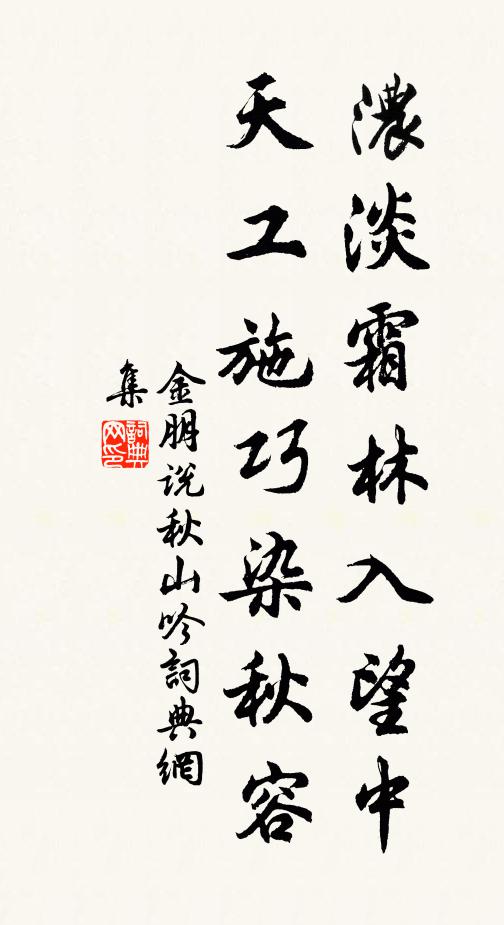 濃淡霜林入望中
天工施巧染秋容
金朋说秋山吟詞典網
集
詞典
网印